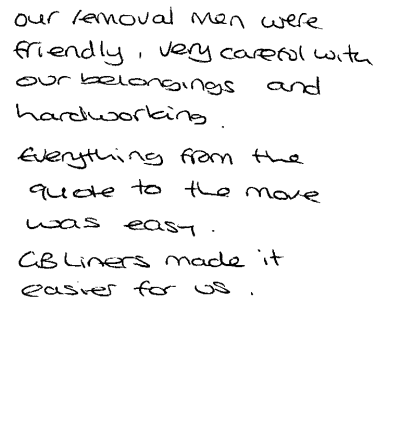 our removal men were
friendly, very careful with
our belongings and
hardworking.
Everything from the
quote to the move
was easy.
GB Liners made it
easier for us.